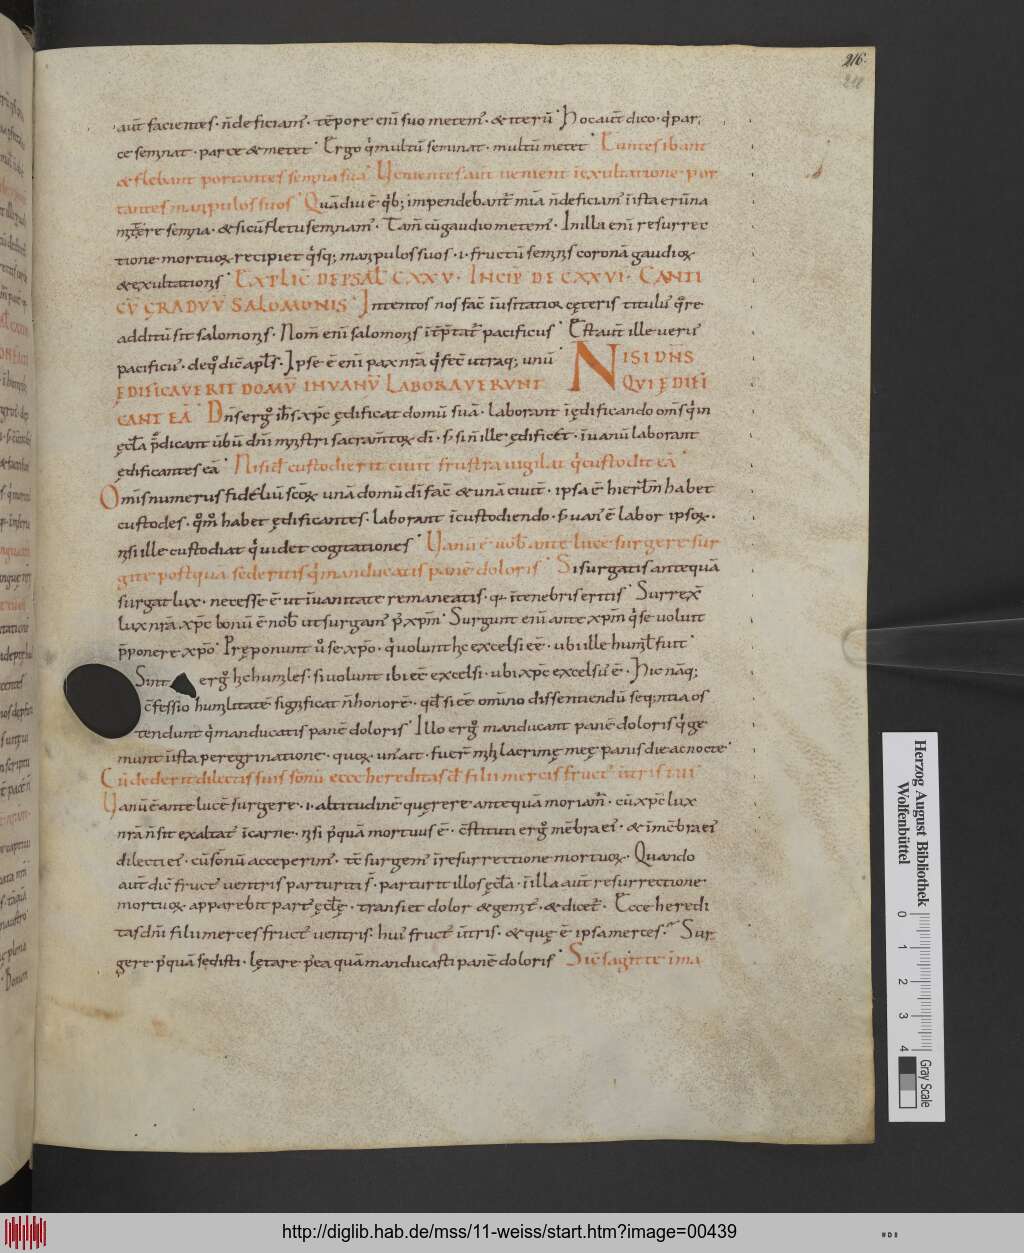 216.
aut̄ facientes · n̄deficiam᾿ · tēpore eni̅ suo metem᾿ · & iterū · Hocaut̄ dico · qͥ par;
ce seminat · parce & metet · Ergo qͥ multū seminat · multū metet · Euntes ibant
& flebant portantes semina sua᾿ Venientes aut̄ venient iexultatione por
tantes manipulos suos · Quādiu ē · qͥb; impendebant᾿ mia̅ n̄deficiam᾿ īista erūna
mittere semina · & sicū fletu seminam᾿ · Tam̄ cū gaudio metem᾿ · In illa eni̅ resurrec
tione mortuoꝝ recipiet qͥsq; manipulos suos · i · fructū seminis coronā gaudioꝝ
& exultationis · EXPLIC̄ DE PSAL̄ CXXV · INCIP̄ DE CXXVI · CANTI
CV̄ GRADVV̄ SALOMONIS · Intentos nos fac̄ īusitatior cęteris titulus᾿ qͣre
additū sit salomonis · Nom̄ eni̅ salomonis īt̄p̄tat᾿ pacificus · Est aut̄ ille verus᾿
pacificus᾿ · de qͦ dic̄ apls̄ · Ipse ē eni̅ pax nr̄a qͥ fec̄ utraq; unū · NISI DN̄S
ĘDIFICAVERIT DOMV̄ INVANV̄ LABORAVERVNT QVI ĘDIFI
CANT EĀ · Dn̄s ergͦ ih̄s xp̄c ędificat domū suā · laborant ī ędificando om̄s qͥ in
ęcl̄a p̄dicant ūbū dn̄i ministri sacram̄toꝝ di̅ · s; sin̄ ille ędificet · īuanū laborant
ędificantes eā · Nisi dn̄s custodierit civit̄ frustra vigilat qͥ custodit eā ·
Om̄is numerus fideliū sc̄oꝝ unā domū di̅ fac̄ & unā civit̄ · ipsa ē hierl̄m habet
custodes · qͦm̄ habet ędificantes · laborant īcustodiendo · s; uan᾿ ē labor ipsoꝝ ·
nisi ille custodiat qͥ uidet cogitationes · Vanū ē vob̄ ante lucē surgere sur
gite postquā sederitis qͥ manducatis panē doloris · Si surgatis antequā
surgat lux · necesse ē ut īuanitate remaneatis · q̄ ītenebris eritis · Surrex̄
lux nr̄a xp̄c bonū ē nob̄ ut surgam᾿ p᾿ xpm̄ · Surgunt eni̅ ante xpm̄ qͥ se volunt
p̄ponere xpō · Pręponunt ū se xpō · qͥ volunt hic excelsi eē · ubi ille humil̄ fuit ·
Sint ergͦ hic humiles · si volunt ibi eē excelsi · ubi xp̄c excelsus᾿ ē · Hic nāq;
c̄fessio humilitatē significat n̄ honorē · qd̄ si ē omīno dissentiendū seq;ntia os
tendunt qͥ manducatis panē doloris · Illo ergͦ manducant panē doloris qͥ ge
munt īista peregrinatione · quoꝝ un᾿ ait · fuer̄ mihi lacrimę meę panis die ac nocte ·
Cū dederit dilectis suis somnū ecce hereditas dn̄i filii merces fruct᾿ ūtris tui
Vanū ē ante lucē surgere · i · altitudinē quęrere antequā moriam᾿ · cū xp̄c lux
nr̄a n̄ sit exaltat᾿ īcarne · nisi pͦquā mortuus ē · c̄stituti ergͦ mēbra ei᾿ · & īmēbra ei᾿
dilecti ei᾿ · cū sōnū acceperim᾿ · tc̄ surgem᾿ īresurrectione mortuoꝝ · Quando
aut̄ dic̄ fruct᾿ ventris parturiti s̄ · parturit illos ęcl̄a · īilla aut̄ resurrectione
mortuoꝝ apparebit part᾿ ęcl̄ę · transiet dolor & gemit᾿ · & dicet᾿ · Ecce heredi
tas dn̄i filii merces fruct᾿ ventris · hui᾿ fruct᾿ ūtris · & quę ē ipsa merces · Sur
gere pͦquā sędisti · lętare pͦea quā manducasti panē doloris · Sic̄ sagitte ī ma
Herzog August Bibliothek
Wolfenbüttel
0 1 2 3 4
Gray Scale
http://diglib.hab.de/mss/11-weiss/start.htm?image=00439